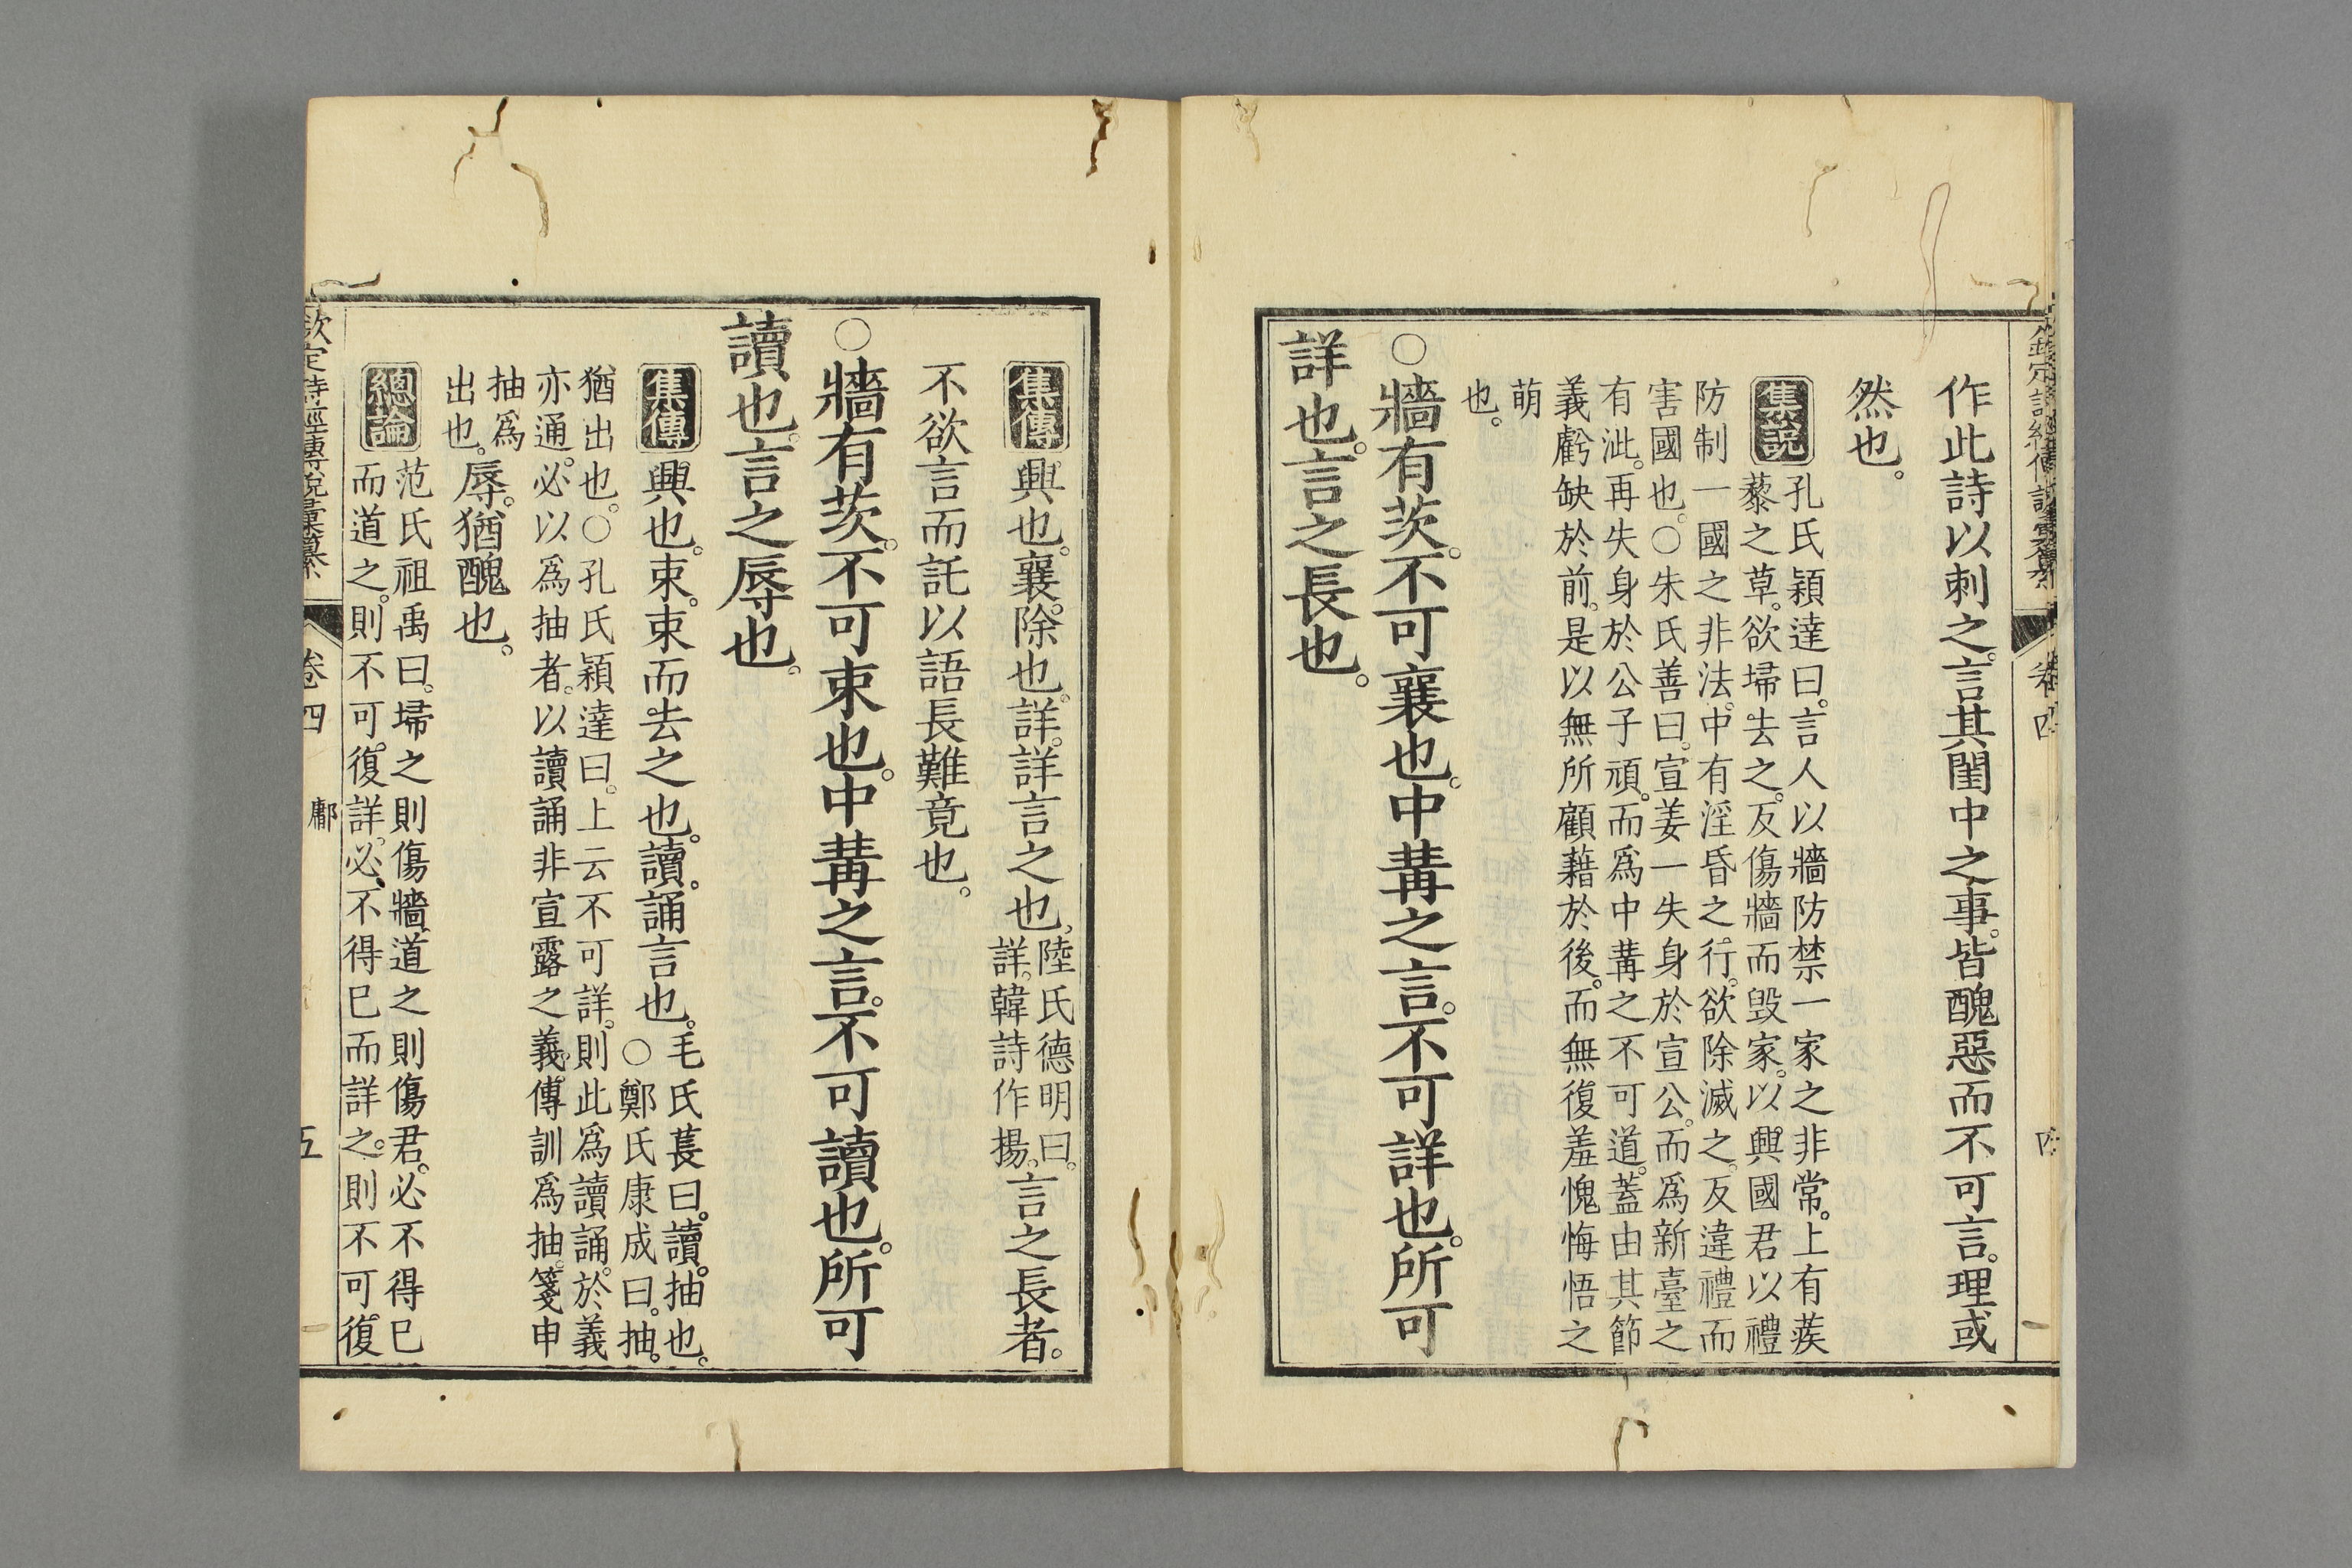 作此詩以刺之。言其閨中之事。皆醜惡而不可言。理或
然也。
集說
孔氏穎達曰。言人以牆防禁一家之非常。上有蒺
藜之草。欲埽去之。反傷牆而毀家。以興國君以禮
防制一國之非法。中有淫昏之行。欲除滅之。反違禮而
害國也。○朱氏善曰。宣姜一失身於宣公。而為新臺之
有泚。再失身於公子頑。而為中冓之不可道。蓋由其節
義虧缺於前。是以無所顧藉於後。而無復羞愧悔悟之
萌
也。
○牆有茨。不可襄也。中冓之言。不可詳也。所可
詳也。言之長也。
集傳
興也。襄。除也。詳。詳言之也。
陸氏德明曰。
詳。韓詩作揚。
言之長者。
不欲言而託以語長難竟也。
○牆有茨。不可束也。中冓之言。不可讀也。所可
讀也。言之辱也。
集傳
興也。束。束而去之也。讀。誦言也。
毛氏萇曰。讀。抽也。
○鄭氏康成曰。抽。
猶出也。○孔氏穎達曰。上云不可詳。則此為讀誦。於義
亦通。必以為抽者。以讀誦非宣露之義。傳訓為抽。箋申
抽為
出也。
辱。猶醜也。
總論
范氏祖禹曰。埽之則傷牆。道之則傷君。必不得已
而道之。則不可復詳。必不得已而詳之。則不可復
欽定詩經傳說彙纂
卷四
鄘
五